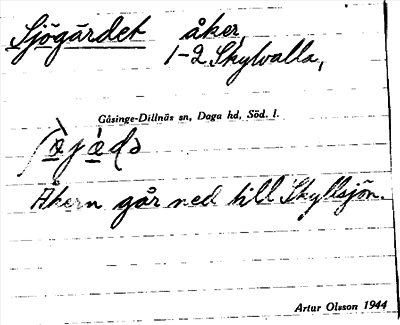 Sjögärdet åker,
1-2 Skylvalla,
Gåsinge-Dillnäs sn, Daga hd, Söd. l.
Åkern går ned till Skyllsjön.
Artur Olsson 1944